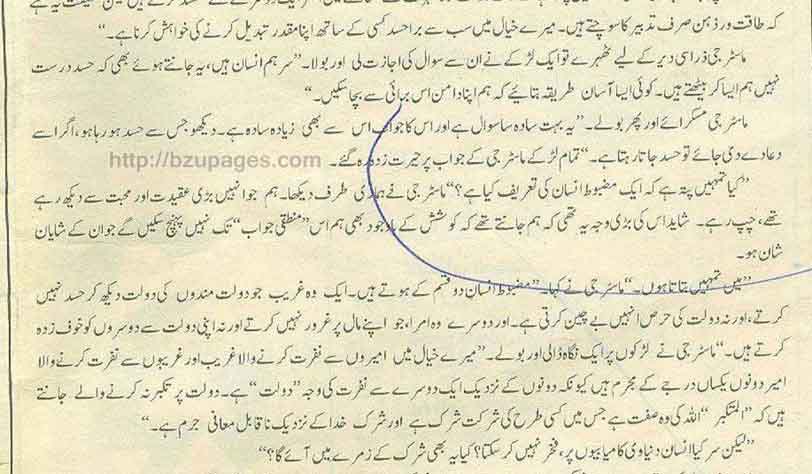 کہ طاقت ور ذہن صرف تدبیر کا سوچتے ہیں۔ میرے خیال میں سب سے برا حسد کسی کے ساتھ اپنا مقدر تبدیل کرنے کی خواہش کرنا ہے۔“
ماسٹر جی ذرا سی دیر کے لیے ٹھہرے تو ایک لڑکے نے ان سے سوال کی اجازت لی اور بولا۔ ”سر ہم انسان ہیں، یہ جانتے ہوئے بھی کہ حسد درست
نہیں ہم ایسا کر بیٹھتے ہیں۔ کوئی ایسا آسان طریقہ بتائیے کہ ہم اپنا دامن اس برائی سے بچا سکیں۔“
ماسٹر جی مسکرائے اور پھر بولے۔ ”یہ بہت سادہ سا سوال ہے اور اس کا جواب اس سے بھی زیادہ سادہ ہے۔ دیکھو جس سے حسد ہو رہا ہو، اگر اسے
دعا دے دی جائے تو حسد جاتا رہتا ہے۔“ تمام لڑکے ماسٹر جی کے جواب پر حیرت زدہ رہ گئے۔
http://bzupages.com
”کیا تمہیں پتہ ہے کہ ایک مضبوط انسان کی تعریف کیا ہے؟“ ماسٹر جی نے ہماری طرف دیکھا۔ ہم جو انہیں بڑی عقیدت اور محبت سے دیکھ رہے
تھے، چپ رہے۔ شاید اس کی بڑی وجہ یہ تھی کہ ہم جانتے تھے کہ کوشش کے باوجود بھی ہم اس ”منطقی جواب“ تک نہیں پہنچ سکیں گے جو ان کے شایان
شان ہو۔
”میں تمہیں بتاتا ہوں۔“ ماسٹر جی نے کہا۔ ”مضبوط انسان دو قسم کے ہوتے ہیں۔ ایک وہ غریب جو دولت مندوں کی دولت دیکھ کر حسد نہیں
کرتے، اور نہ دولت کی حرص انہیں بے چین کرتی ہے۔ اور دوسرے وہ امراء، جو اپنے مال پر غرور نہیں کرتے اور نہ اپنی دولت سے دوسروں کو خوف زدہ
کرتے ہیں۔“ ماسٹر جی نے لڑکوں پر ایک نگاہ ڈالی اور بولے۔ ”میرے خیال میں امیروں سے نفرت کرنے والا غریب اور غریبوں سے نفرت کرنے والا
امیر دونوں یکساں درجے کے مجرم ہیں کیونکہ دونوں کے نزدیک ایک دوسرے سے نفرت کی وجہ ”دولت“ ہے۔ دولت پر تکبر نہ کرنے والے جانتے
ہیں کہ ”المتکبر“ اللہ کی وہ صفت ہے جس میں کسی طرح کی شرکت شرک ہے اور شرک خدا کے نزدیک ناقابل معافی جرم ہے۔“
”لیکن سر کیا انسان دنیاوی کامیابیوں پر، فخر نہیں کر سکتا؟ کیا یہ بھی شرک کے زمرے میں آئے گا؟“